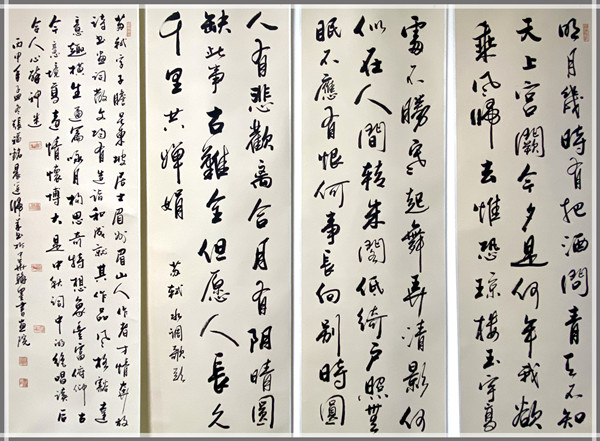 明月幾時有把酒問青天不知
天上宮闕今夕是何年我欲
乘風歸去惟恐瓊樓玉宇高
處不勝寒起舞弄清影何
似在人間轉朱閣低綺戶照無
眠不應有恨何事長向別時圓
人有悲歡離合月有阴晴圓
缺此事古難全但愿人長久
千里共嬋娟
苏轼水調歌頭
苏轼字子瞻号東坡居士眉州眉山人作者才情奔放
诗书画词散文均有造诣和成就其作品風格豁達
意趣橫生通篇咏月构思奇特想象豐富俯仰古
今意境高遠情懷博大是中秋词中的絕唱讀后
令人心醉神迷
丙申年孟冬張福銘 翰墨書画院